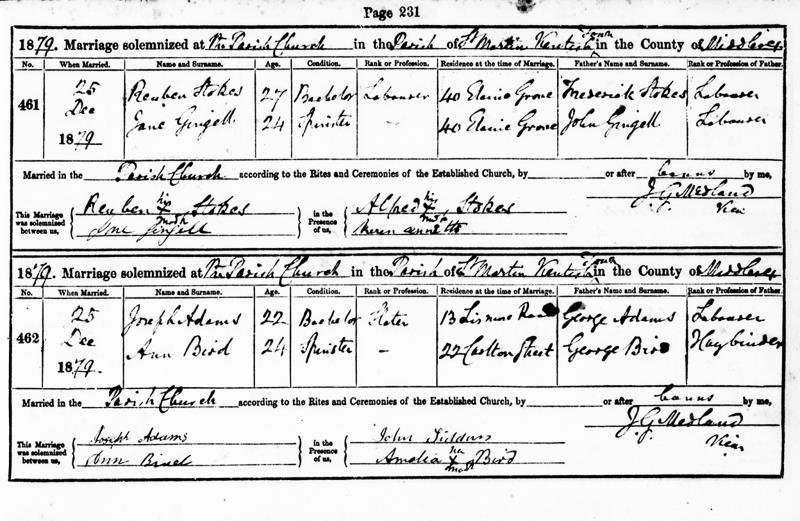 Page 231
1879. Marriage solemnized at the Parish Church in the Parish of St Martin Kentish Town in the County of Middlesex
No. When Married. Name and Surname. Age. Condition. Rank or Profession. Residence at the time of Marriage. Father's Name and Surname. Rank or Profession of Father.
461 25 Dec 1879 Reuben Stokes 27 Bachelor Labourer 40 Elaine Grove Frederick Stokes Labourer
Jane Gingell 24 Spinster – 40 Elaine Grove John Gingell Labourer
Married in the Parish Church according to the Rites and Ceremonies of the Established Church, by or after banns by me,
J. G. Medland
Vicar
This Marriage was solemnized between us, Reuben his X mark Stokes in the Presence of us, Alfred his X mark Stokes
Gingell
1879. Marriage solemnized at the Parish Church in the Parish of St Martin Kentish Town in the County of Middlesex
No. When Married. Name and Surname. Age. Condition. Rank or Profession. Residence at the time of Marriage. Father's Name and Surname. Rank or Profession of Father.
462 25 Dec 1879. Joseph Adams 22 Bachelor Slater 13 Lismore Road George Adams Labourer
Ann Bird 24 Spinster – 22 Carlton Street George Bird Haybinder
Married in the Parish Church according to the Rites and Ceremonies of the Established Church, by or after banns by me,
J. G. Medland
Vicar
This Marriage was solemnized between us, Joseph Adams in the Presence of us, John
Ann Bird Amelia her X mark Bird